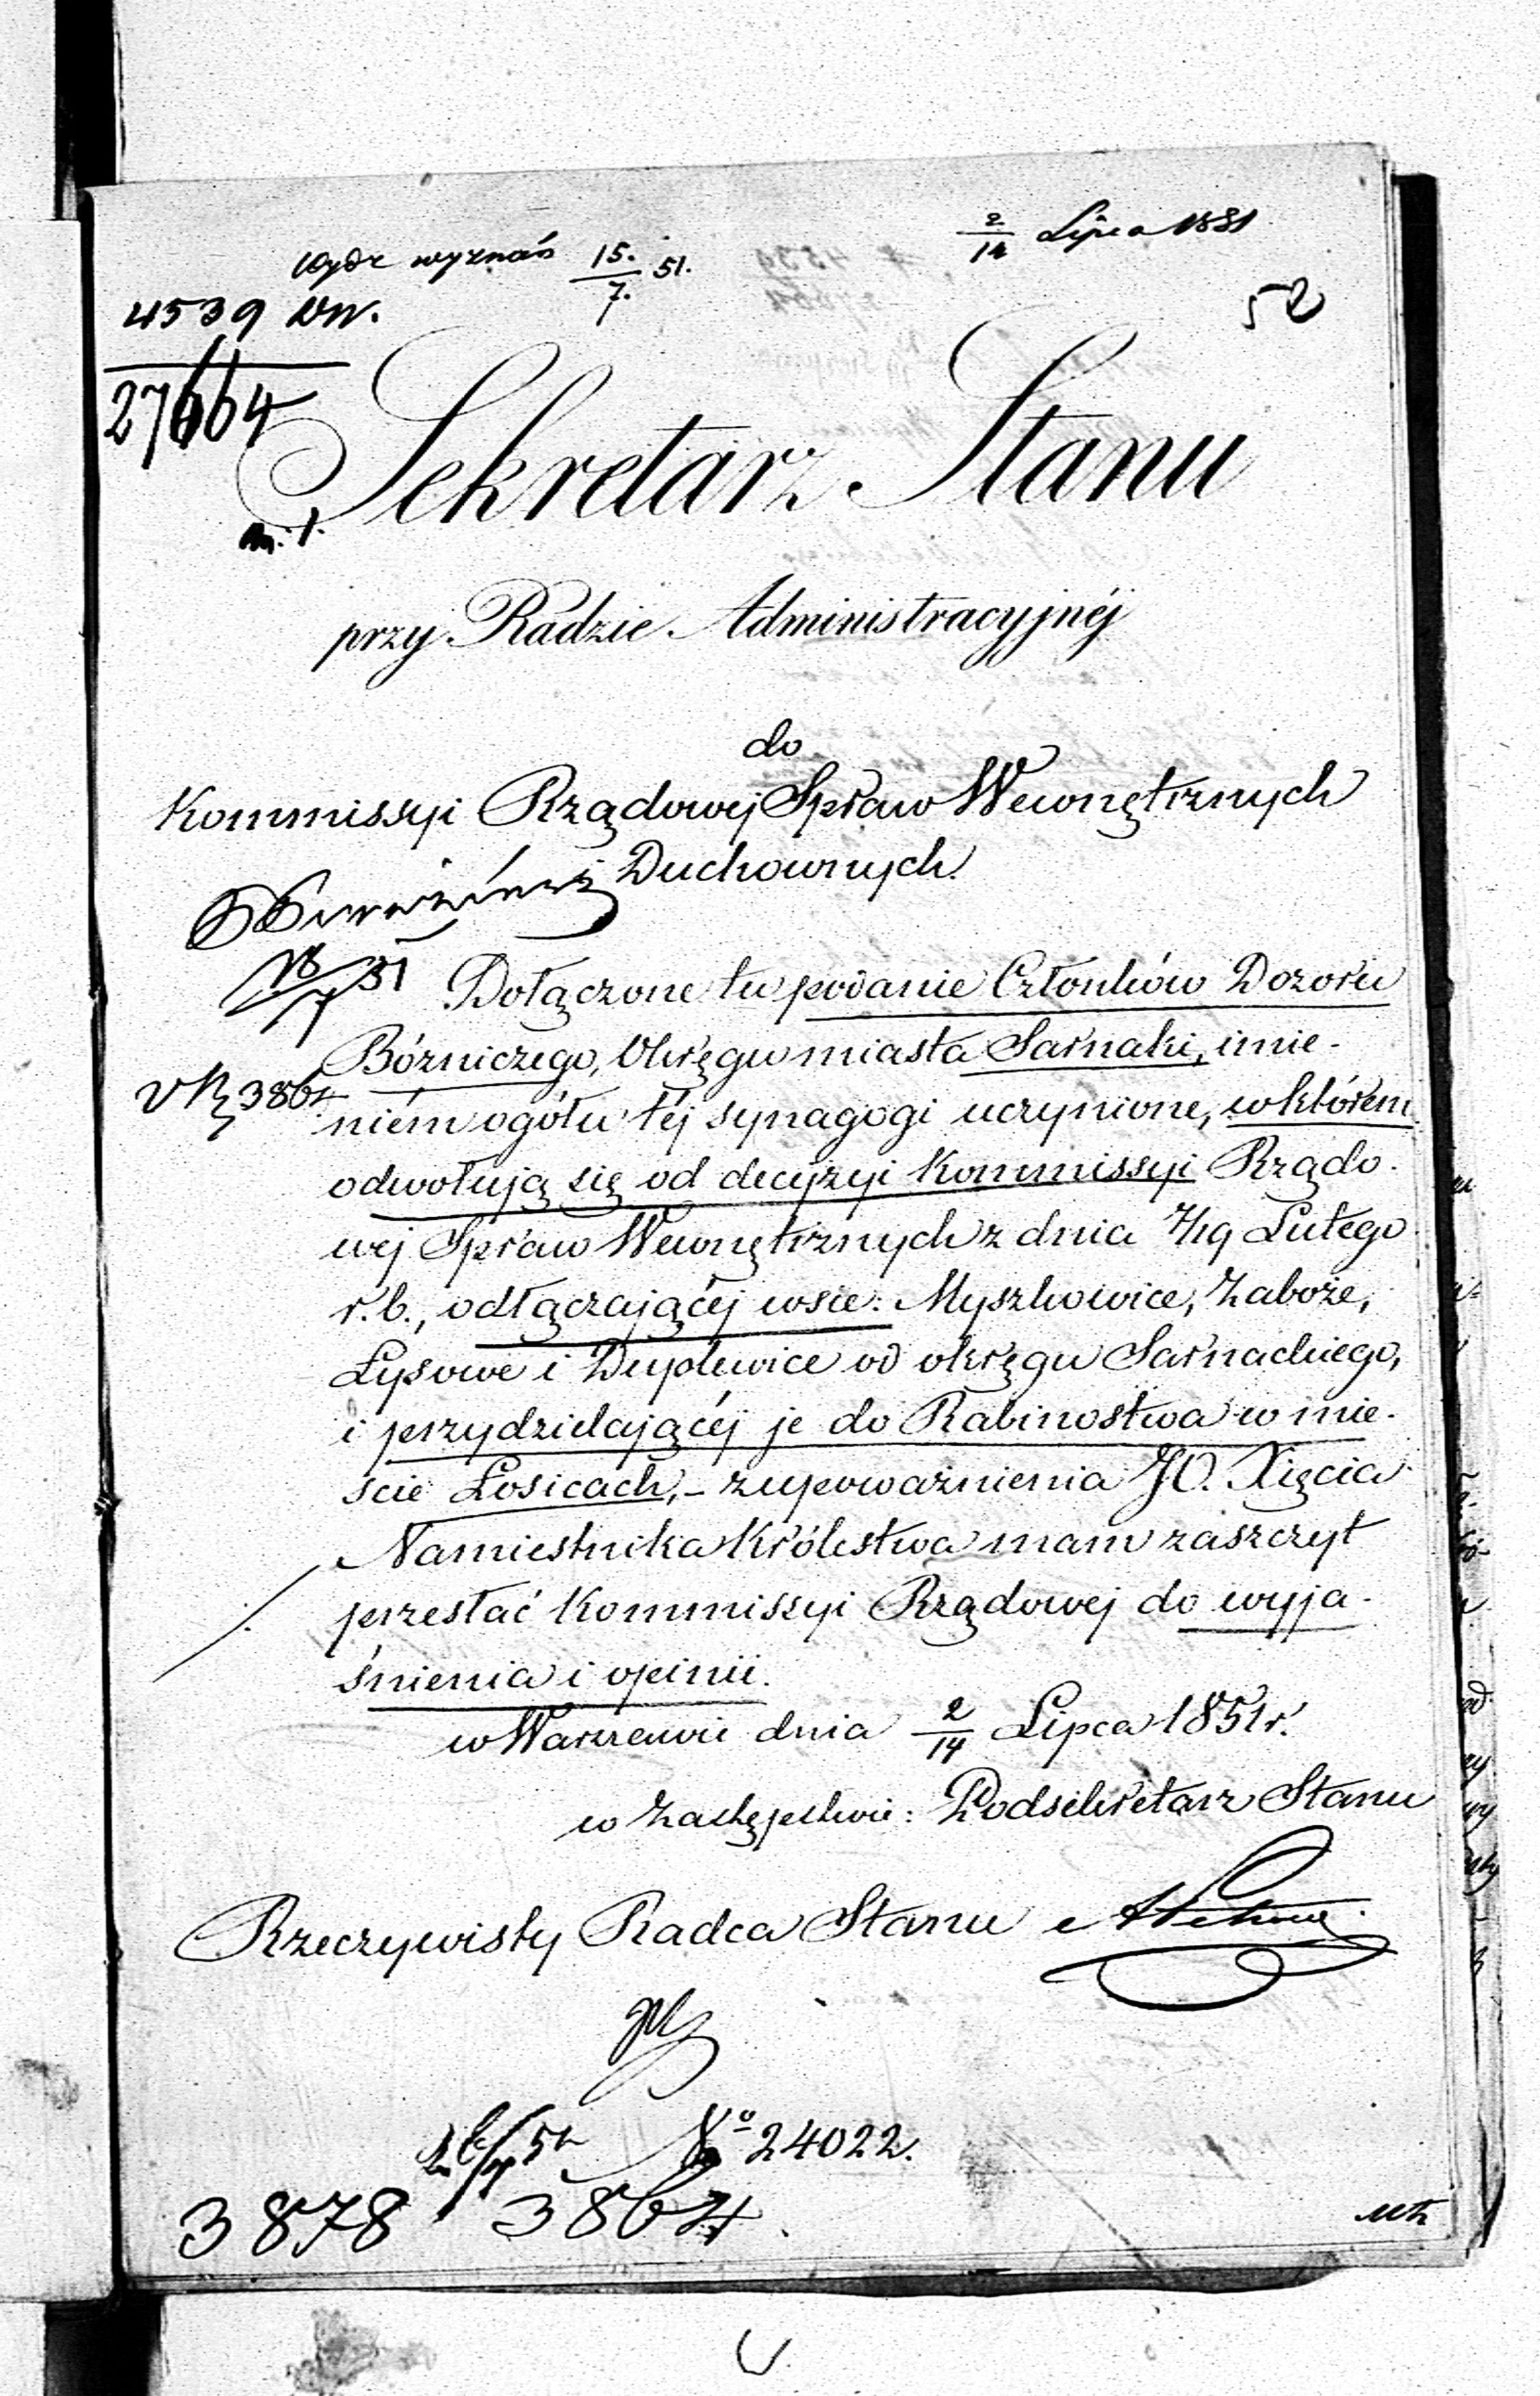 2/14 Lipca 1851
Wydz wyznań 15./7. 51.
4539
52
27664
Sekretarz Stanu
przy Radzie Administracyjnéj
do
Kommissyi Rządowej Spraw Wewnętrznych
Duchownych.
51 Dołączone tu podanie Członków Dozoru
Bózniczego, Okręgu miasta Sarnaki, imie-
3864
niém ogółu téj synagogi uczynione, w którém
odwołują się od decyzyi Kommissyi Rządo-
wej Spraw Wewnętrznych z dnia 7/19 Lutego
r. b., odłączającéj wsie: Myszkowice, Zaboże,
Łysowe i Duplewice od okręgu Sarnackiego,
i przydzielającéj je do Rabinostwa w mie-
ście Łosicach, – z upoważnienia JO. Xięcia
Namiestnika Królestwa mam zaszczyt
przesłać Kommissyi Rządowej do wyja-
śnienia i opinii.
w Warszawie dnia 2/14 Lipca 1851 r.
w Zastępstwie: Podsekretarz Stanu
Rzeczywisty Radca Stanu
No 24022.
3878 3864